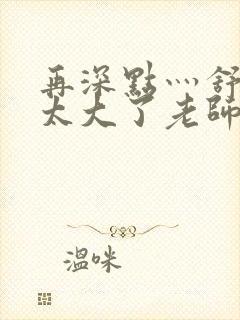 再深點灬舒
太大了老師
溫咪